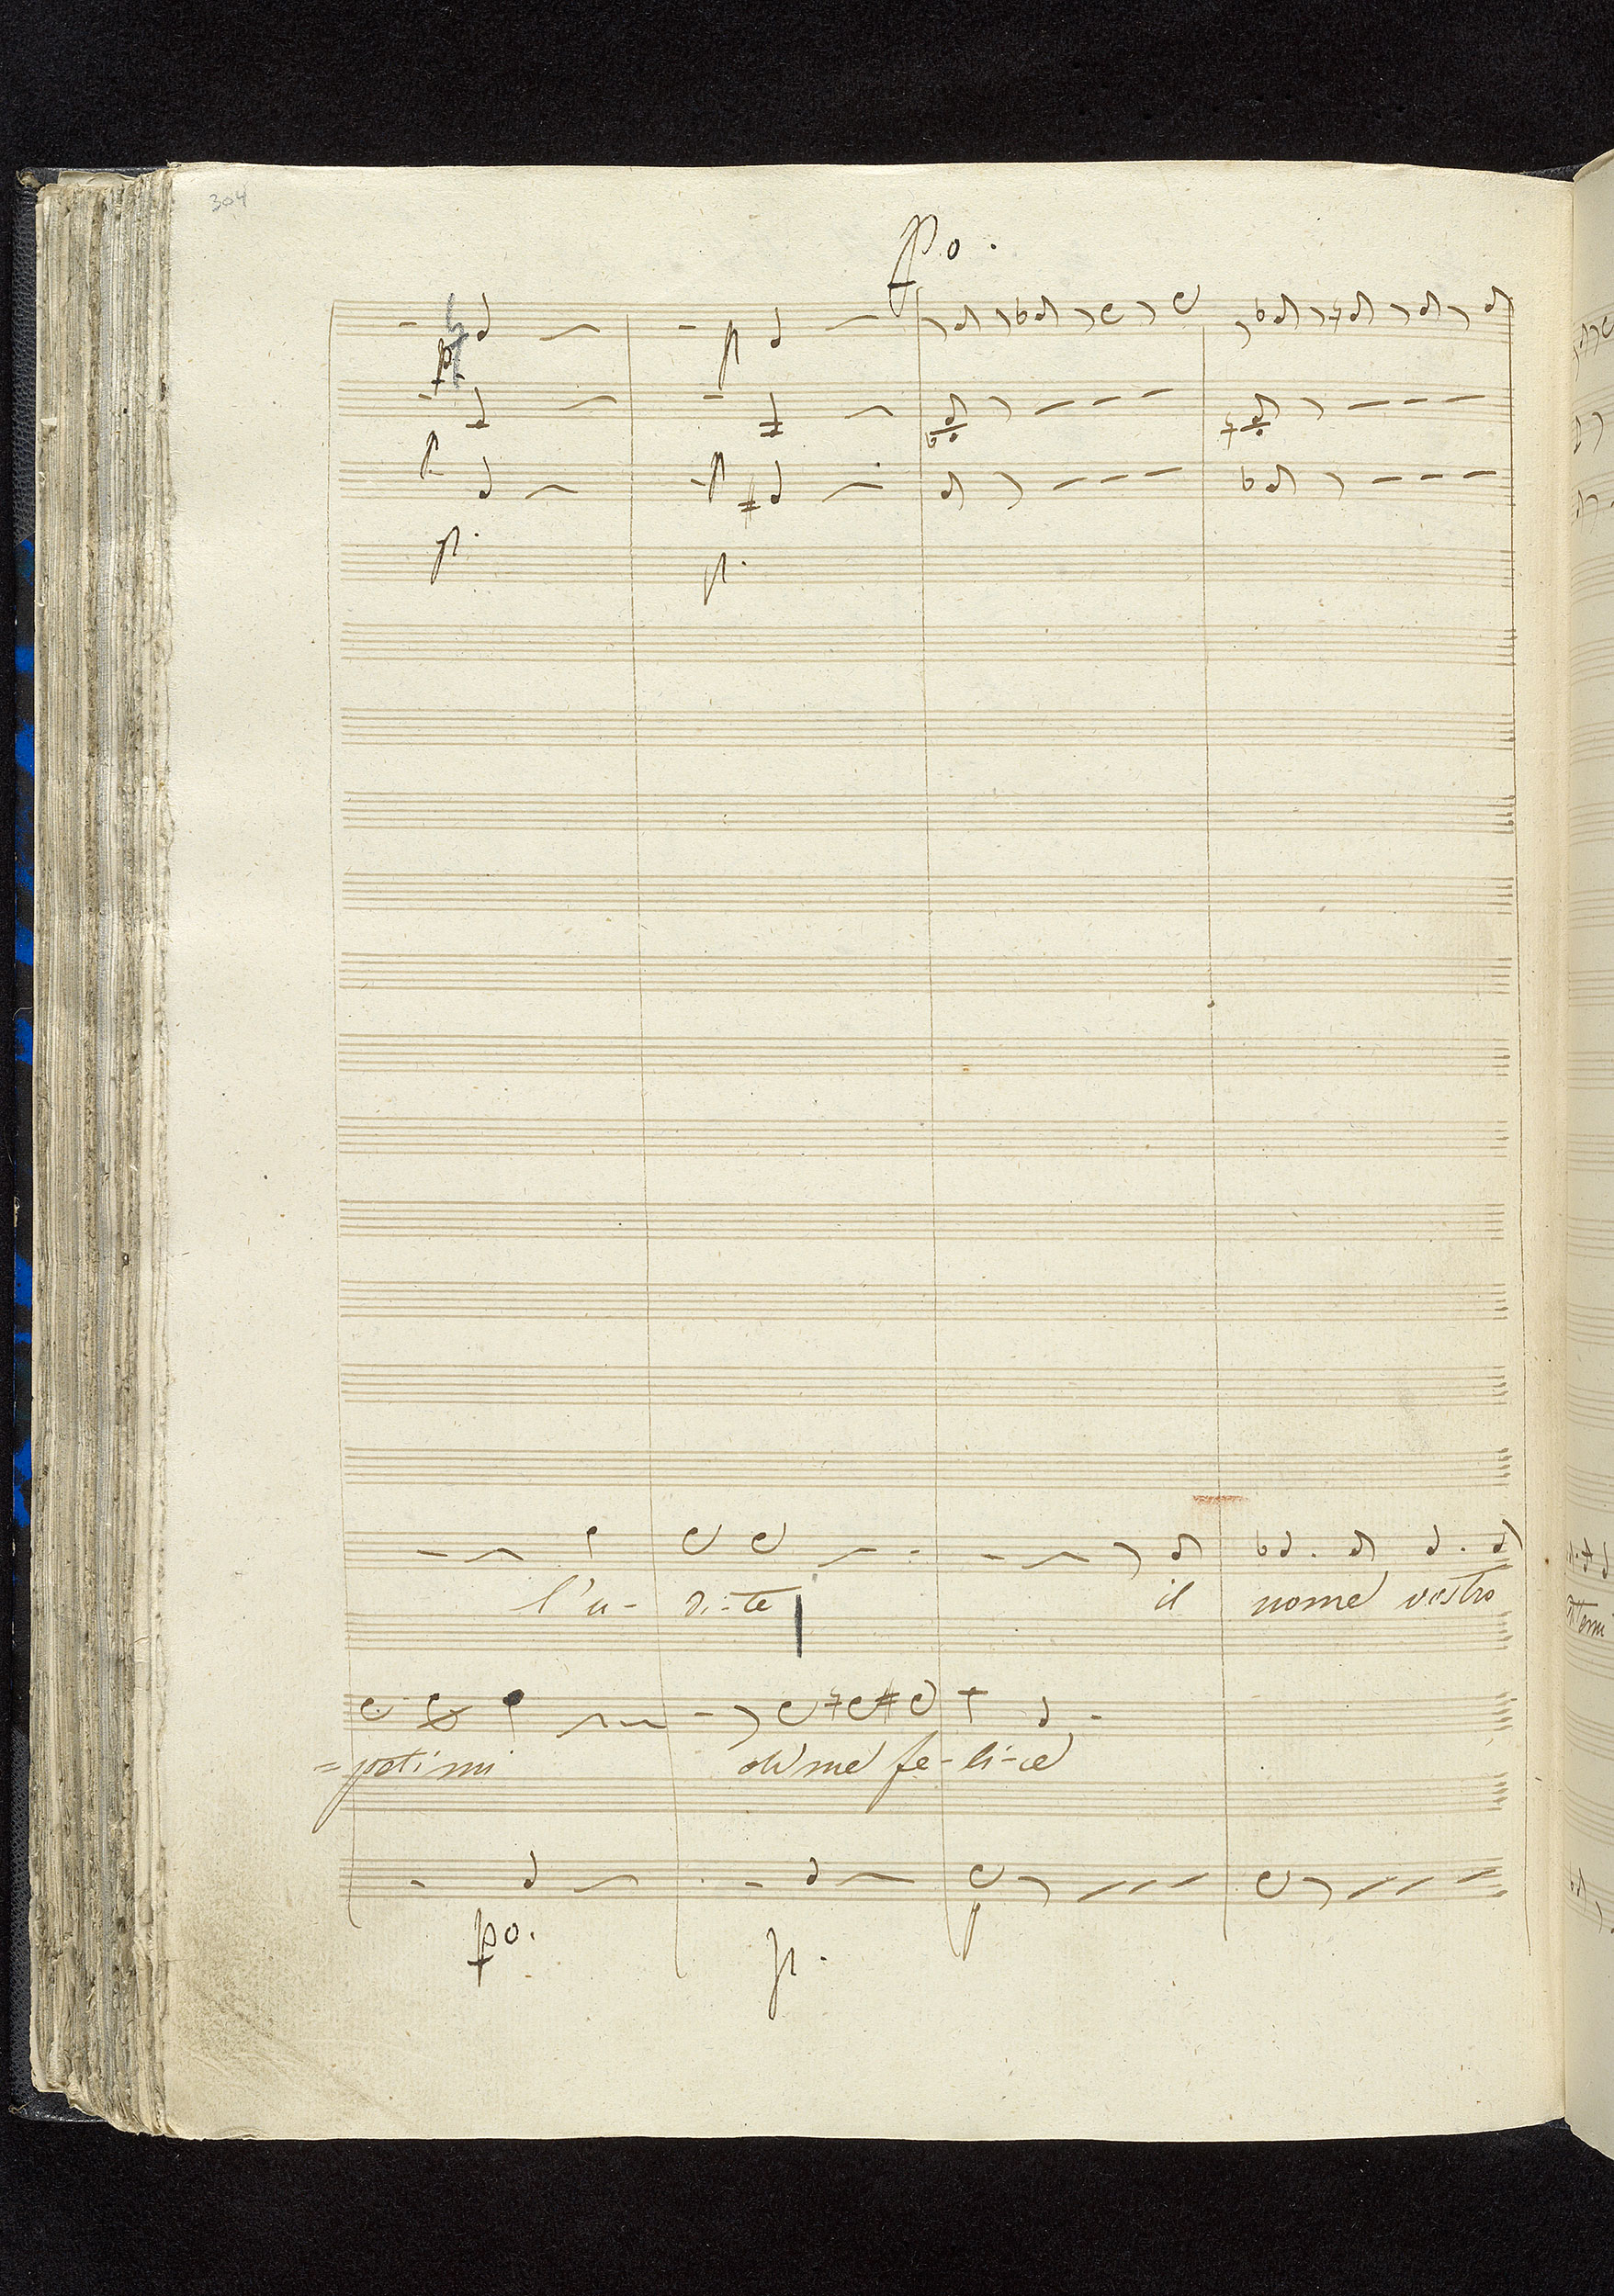 304
po.
p. p
p. p
p. p.
l'u- di-te il nome vostro
=potimi ohime fe-li-ce
po. p. p